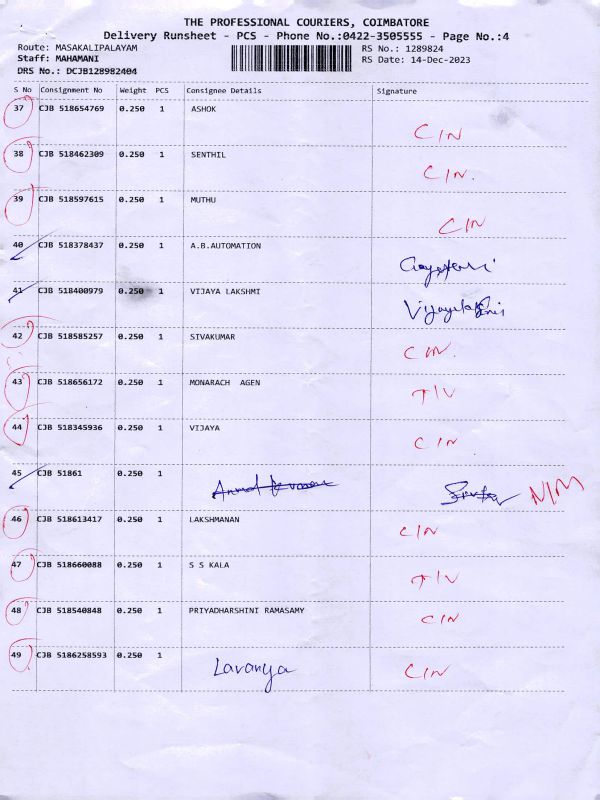 THE PROFESSIONAL COURIERS, COIMBATORE
Delivery Runsheet - PCS - Phone No.:0422-3505555 - Page No.:4
Route: MASAKALIPALAYAM RS No.: 1289824
Staff: MAHAMANI RS Date: 14-Dec-2023
DRS No.: DCJB128982404
S No Consignment No Weight PCS Consignee Details Signature
37 CJB 518654769 0.250 1 ASHOK
C/N
38 CJB 518462309 0.250 1 SENTHIL
C/N.
39 CJB 518597615 0.250 1 MUTHU
C/N
40 CJB 518378437 0.250 1 A.B.AUTOMATION
41 CJB 518400979 0.250 1 VIJAYA LAKSHMI
42 CJB 518585257 0.250 1 SIVAKUMAR
C/N.
43 CJB 518656172 0.250 1 MONARACH AGEN
T/V
44 CJB 518345936 0.250 1 VIJAYA
C/N
45 CJB 51861 0.250 1
N/M
46 CJB 518613417 0.250 1 LAKSHMANAN
C/N
47 CJB 518660088 0.250 1 S S KALA
T/V
48 CJB 518540848 0.250 1 PRIYADHARSHINI RAMASAMY
C/N
49 CJB 5186258593 0.250 1
Lavanya C/N